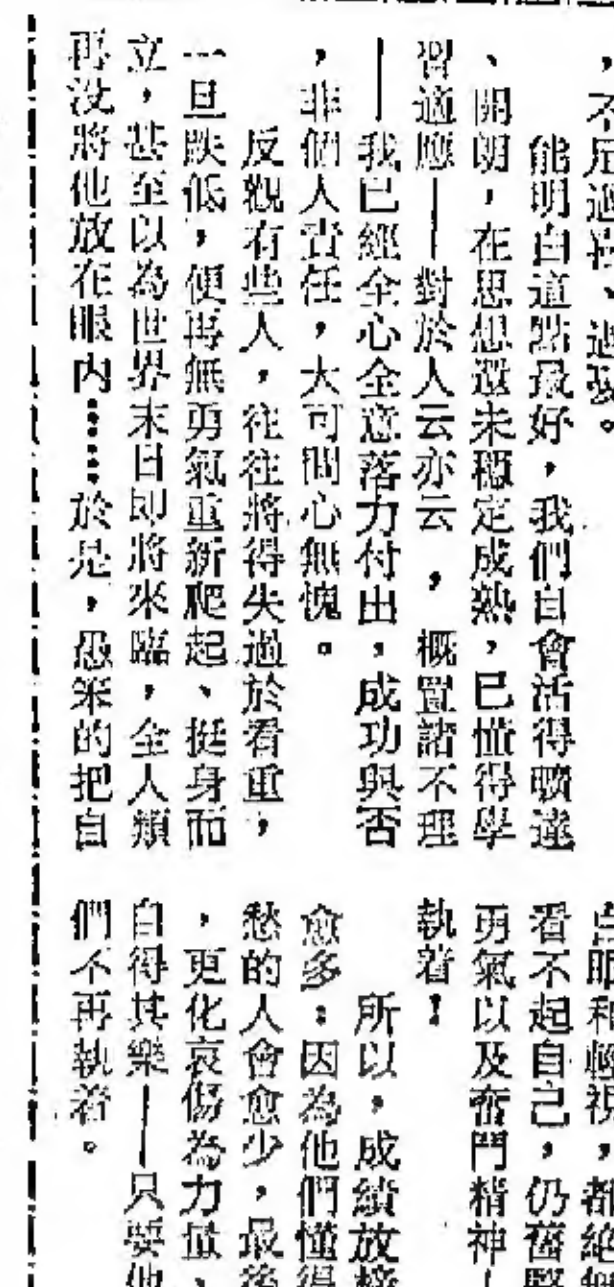 ，不足過喜、過憂。
能明白這點最好，我們自會活得曠達
、開朗，在思想還未穩定成熟，已懂得學
習適應——對於人云亦云，概置諸不理
——我已經全心全意落力付出，成功與否
，非個人責任，大可問心無愧。
反觀有些人，往往將得失過於看重，
一旦跌低，便再無勇氣重新爬起、挺身而
立，甚至以為世界末日即將來臨，全人類
再没將他放在眼内……於是，愚笨的把自
白眼和輕視，都絕無
看不起自己，仍舊
勇氣以及奮鬥精神—
執着！
所以，成績放榜
愈多：因為他們懂得
愁的人會愈少，最後
，更化哀傷為力量、
自得其樂——只要他
們不再執着。